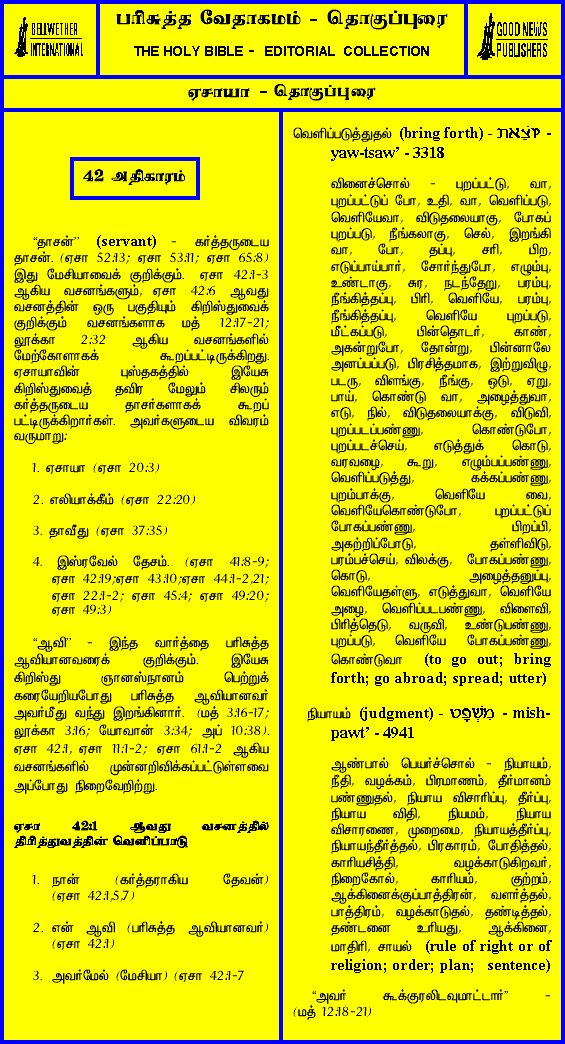 BELLWETHER
INTERNATIONAL
பரிசுத்த வேதாகமம் - தொகுப்புரை
THE HOLY BIBLE - EDITORIAL COLLECTION
GOOD NEWS
PUBLISHERS
ஏசாயா - தொகுப்புரை
42 அதிகாரம்
“தாசன்” (servant) - கர்த்தருடைய
தாசன். (ஏசா 52:13; ஏசா 53:11; ஏசா 65:8)
இது மேசியாவைக் குறிக்கும். ஏசா 42:1-3
ஆகிய வசனங்களும், ஏசா 42:6 ஆவது
வசனத்தின் ஒரு பகுதியும் கிறிஸ்துவைக்
குறிக்கும் வசனங்களாக மத் 12:17-21;
லூக்கா 2:32 ஆகிய வசனங்களில்
மேற்கோளாகக் கூறப்பட்டிருக்கிறது.
ஏசாயாவின் புஸ்தகத்தில் இயேசு
கிறிஸ்துவைத் தவிர மேலும் சிலரும்
கர்த்தருடைய தாசர்களாகக் கூறப்
பட்டிருக்கிறார்கள். அவர்களுடைய விவரம்
வருமாறு:
1. ஏசாயா (ஏசா 20:3)
2. எலியாக்கீம் (ஏசா 22:20)
3. தாவீது (ஏசா 37:35)
4. இஸ்ரவேல் தேசம். (ஏசா 41:8-9;
ஏசா 42:19;ஏசா 43:10;ஏசா 44:1-2,21;
ஏசா 22:1-2; ஏசா 45:4; ஏசா 49:20;
ஏசா 49:3)
“ஆவி” - இந்த வார்த்தை பரிசுத்த
ஆவியானவரைக் குறிக்கும். இயேசு
கிறிஸ்து ஞானஸ்நானம் பெற்றுக்
கரையேறியபோது பரிசுத்த ஆவியானவர்
அவர்மீது வந்து இறங்கினார். (மத் 3:16-17;
லூக்கா 3:16; யோவான் 3:34; அப் 10:38).
ஏசா 42:1, ஏசா 11:1-2; ஏசா 61:1-2 ஆகிய
வசனங்களில் முன்னறிவிக்கப்பட்டுள்ளவை
அப்போது நிறைவேறிற்று.
ஏசா 42:1 ஆவது வசனத்தில்
திரித்துவத்தின் வெளிப்பாடு
1. நான் (கர்த்தராகிய தேவன்)
(ஏசா 42:1,5,7)
2. என் ஆவி (பரிசுத்த ஆவியானவர்)
(ஏசா 42:1)
3. அவர்மேல் (மேசியா) (ஏசா 42:1-7
வெளிப்படுத்துதல் (bring forth) - יוֹצֵאת -
yaw-tsaw’ - 3318
வினைச்சொல் - புறப்பட்டு, வா,
புறப்பட்டுப் போ, உதி, வா, வெளிப்படு,
வெளியேவா, விடுதலையாகு, போகப்
புறப்படு, நீங்கலாகு, செல், இறங்கி
வா, போ, தப்பு, சரி, பிற,
எடுப்பாய்பார், சோர்ந்துபோ, எழும்பு,
உண்டாகு, சுர, நடந்தேறு, பரம்பு,
நீங்கித்தப்பு, பிரி, வெளியே, பரம்பு,
நீங்கித்தப்பு, வெளியே புறப்படு,
மீட்கப்படு, பின்தொடர், காண்,
அகன்றுபோ, தோன்று, பின்னாலே
அனப்பப்படு, பிரசித்தமாக, இற்றுவிழு,
படரு, விளங்கு, நீங்கு, ஒடு, ஏறு,
பாய், கொண்டு வா, அழைத்துவா,
எடு, நில், விடுதலையாக்கு, விடுவி,
புறப்படப்பண்ணு, கொண்டுபோ,
புறப்படச்செய், எடுத்துக் கொடு,
வரவழை, கூறு, எழும்பப்பண்ணு,
வெளிப்படுத்து, கக்கப்பண்ணு,
புறம்பாக்கு, வெளியே வை,
வெளியேகொண்டுபோ, புறப்பட்டுப்
போகப்பண்ணு, பிறப்பி,
அகற்றிப்போடு, தள்ளிவிடு,
பரம்பச்செய், விலக்கு, போகப்பண்ணு,
கொடு, அழைத்தனுப்பு,
வெளியேதள்ளு, எடுத்துவா, வெளியே
அழை, வெளிப்படபண்ணு, விளைவி,
பிரித்தெடு, வருவி, உண்டுபண்ணு,
புறப்படு, வெளியே போகப்பண்ணு,
கொண்டுவா (to go out; bring
forth; go abroad; spread; utter)
நியாயம் (judgment) - מִשְׁפָּט - mish-
pawt’ - 4941
ஆண்பால் பெயர்ச்சொல் - நியாயம்,
நீதி, வழக்கம், பிரமாணம், தீர்மானம்
பண்ணுதல், நியாய விசாரிப்பு, தீர்ப்பு,
நியாய விதி, நியமம், நியாய
விசாரணை, முறைமை, நியாயத்தீர்ப்பு,
நியாயந்தீர்த்தல், பிரகாரம், போதித்தல்,
காரியசித்தி, வழக்காடுகிறவர்,
நிறைகோல், காரியம், குற்றம்,
ஆக்கினைக்குப்பாத்திரன், வளர்த்தல்,
பாத்திரம், வழக்காடுதல், தண்டித்தல்,
தண்டனை உரியது, ஆக்கினை,
மாதிரி, சாயல் (rule of right or of
religion; order; plan; sentence)
“அவர் கூக்குரலிடவுமாட்டார்” -
(மத் 12:18-21)